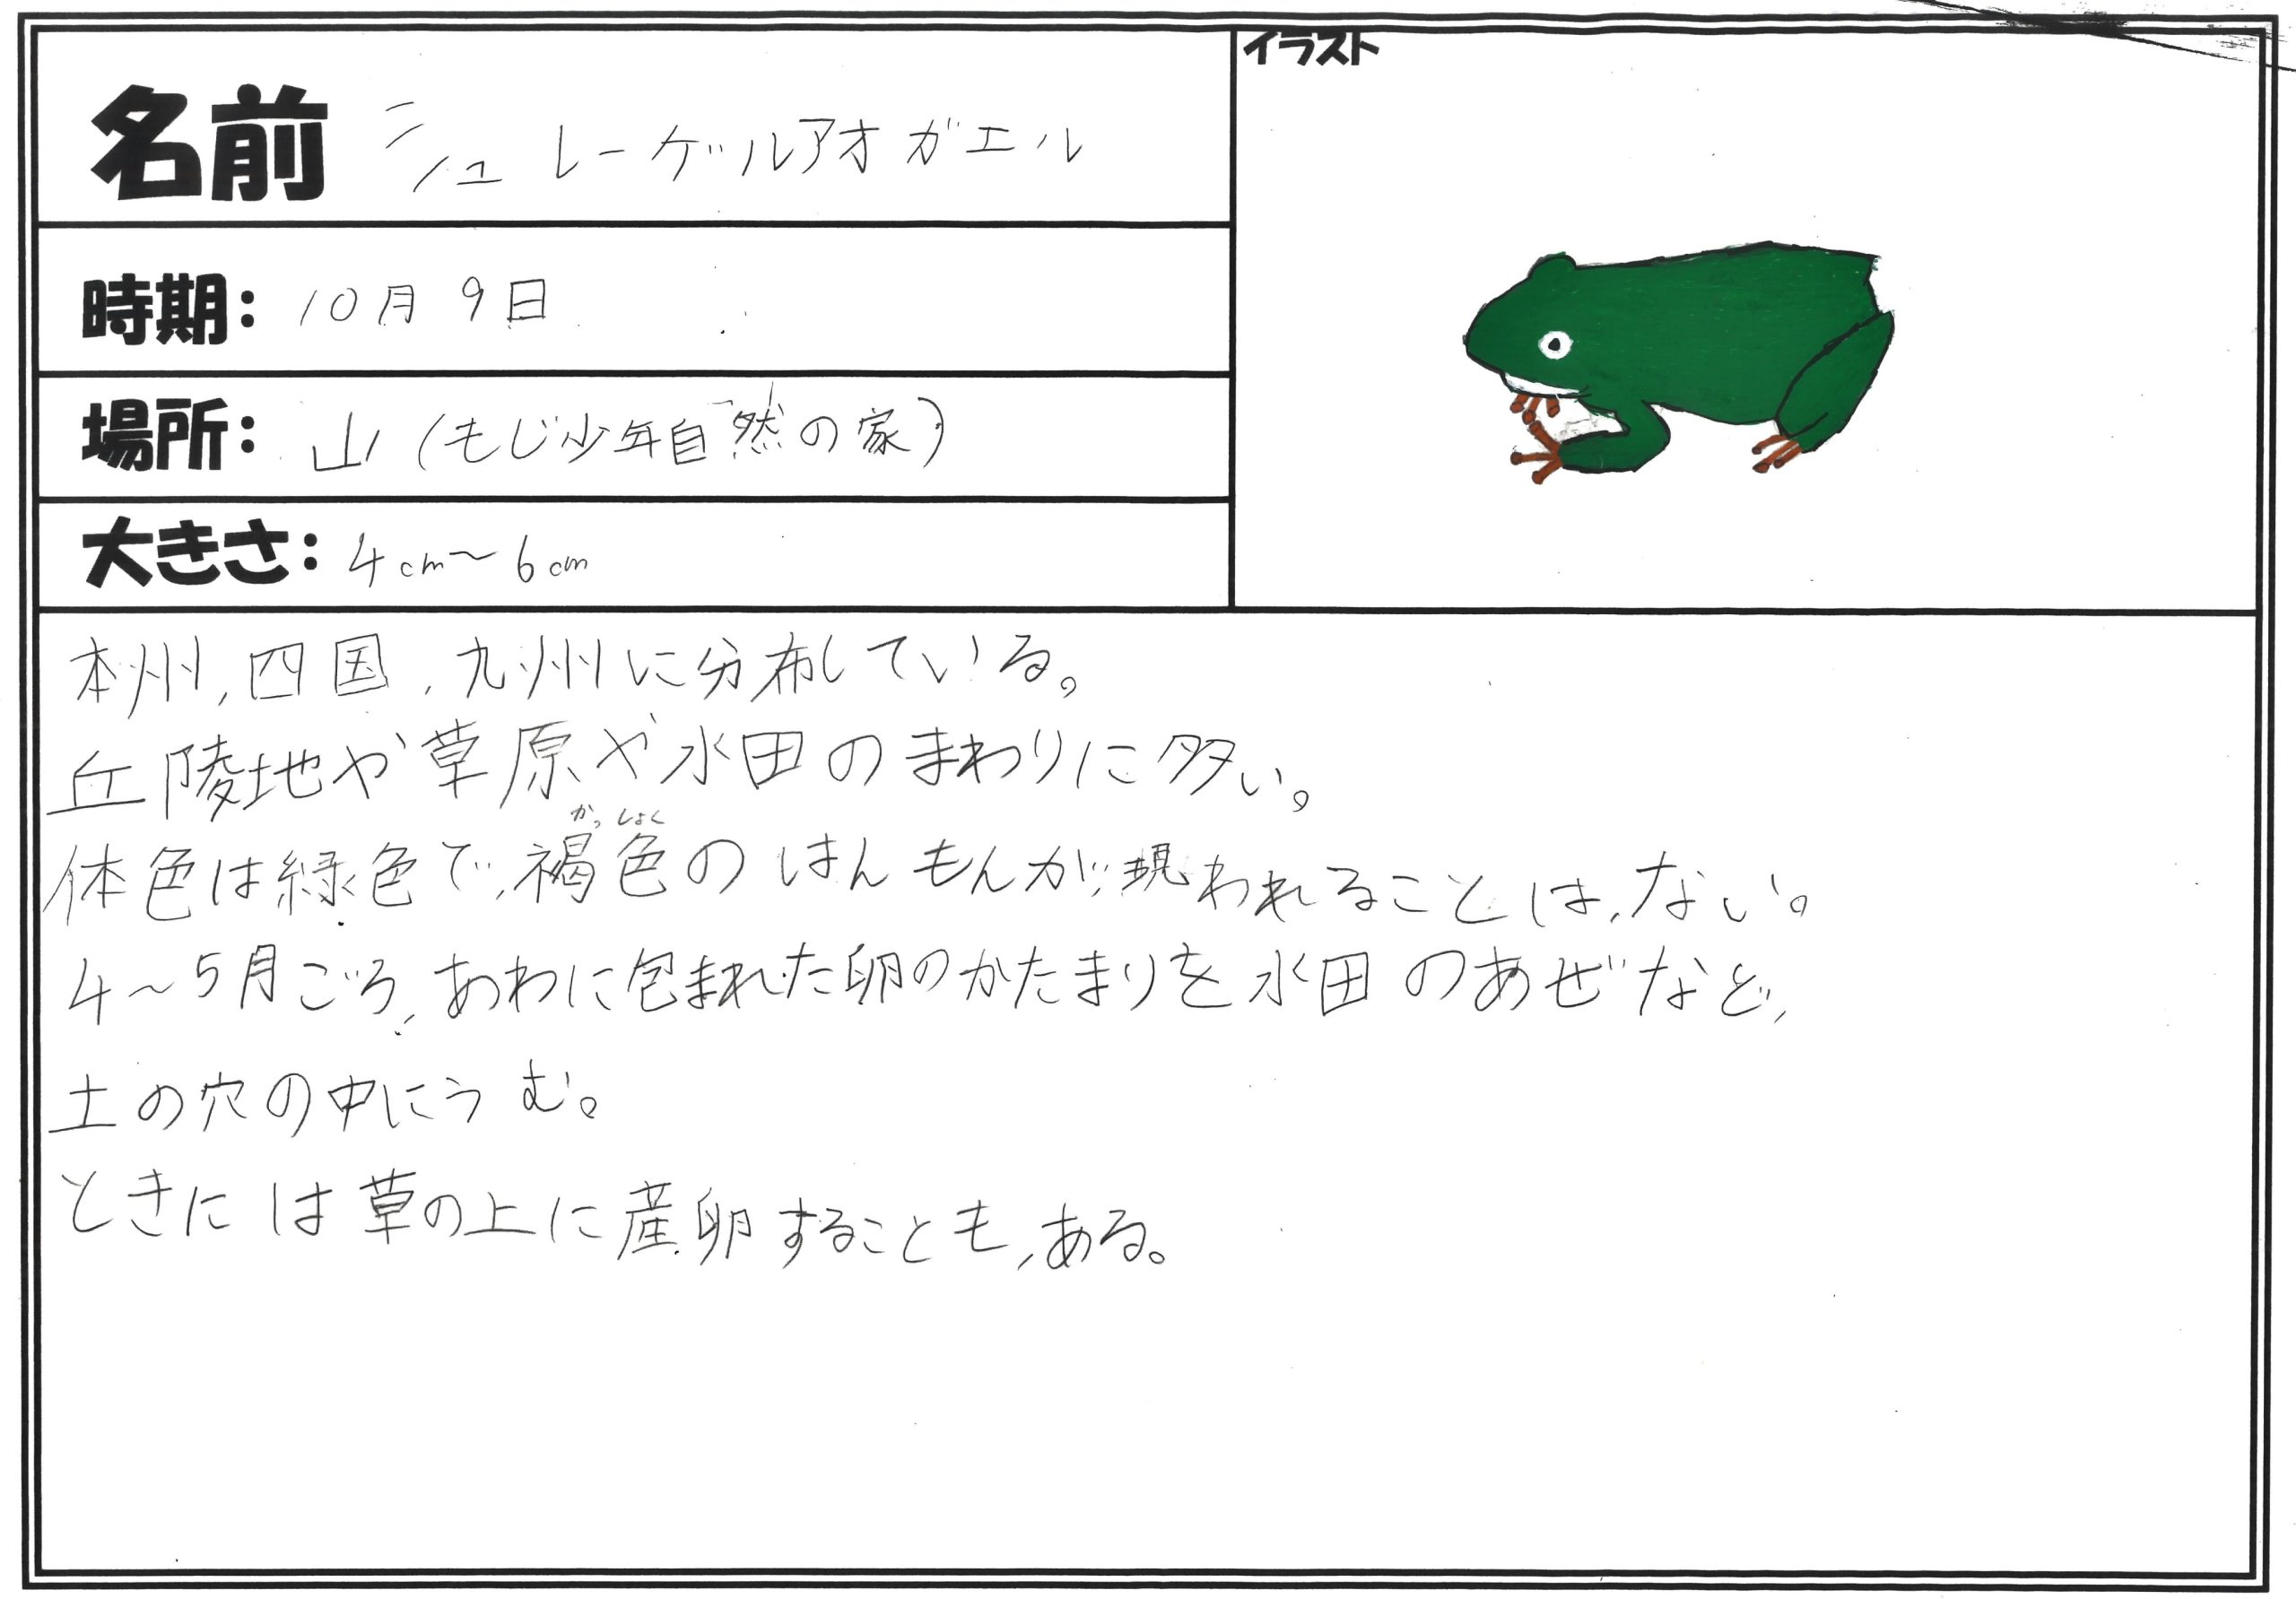 名前 シュレーゲルアオガエル
イラスト
時期: 10月9日
場所: 山(もじ少年自然の家)
大きさ: 4cm〜6cm
本州,四国,九州に分布している。
丘陵地や草原や水田のまわりに多い。
かっしょく
体色は緑色で,褐色のはんもんが,現われることは,ない。
4〜5月ごろ,あわに包まれた卵のかたまりを水田のあぜなど,
土の穴の中にうむ。
ときには草の上に産卵することも,ある。